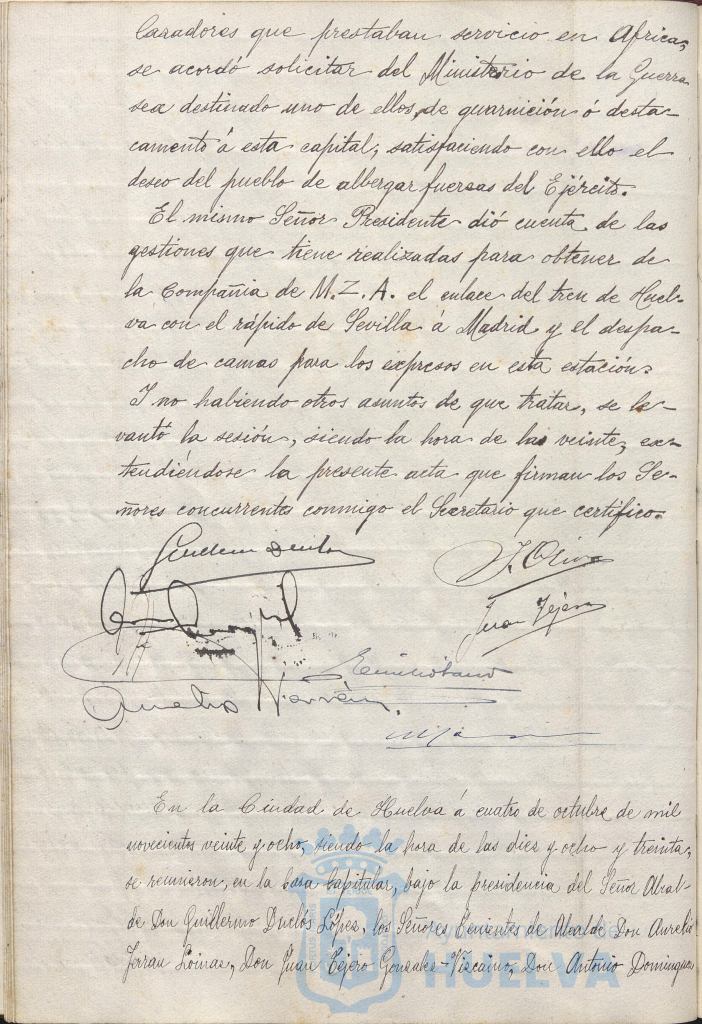 Cazadores que prestaban servicio en Africa,
se acordó solicitar del Ministerio de la Guerra
sea destinado uno de ellos, de guarnición ó desta-
camento á esta capital, satisfaciendo con ello el
deseo del pueblo de albergar fuerzas del Ejército.
El mismo Señor Presidente dió cuenta de las
gestiones que tiene realizadas para obtener de
la Compañia de M.Z.A. el enlace del tren de Huel-
va con el rápido de Sevilla á Madrid y el despa-
cho de camas para los expresos en esta estación.
Y no habiendo otros asuntos de que tratar, se le-
vantó la sesión, siendo la hora de las veinte, ex-
tendiéndose la presente acta que firman los Se-
ñores concurrentes conmigo el Secretario que certifico.
J. Oliva
Juan Tejero
En la Ciudad de Huelva á cuatro de octubre de mil
novecientos veinte y ocho, siendo la hora de las diez y ocho y treinta,
se reunieron, en la Casa Capitular, bajo la presidencia del Señor Alcal-
de Don Guillermo Duclós López, los Señores Tenientes de Alcalde Don Aurelio
Don Juan Tejero Gonzalez-Vizcaino, Don Antonio Dominguez
HUELVA